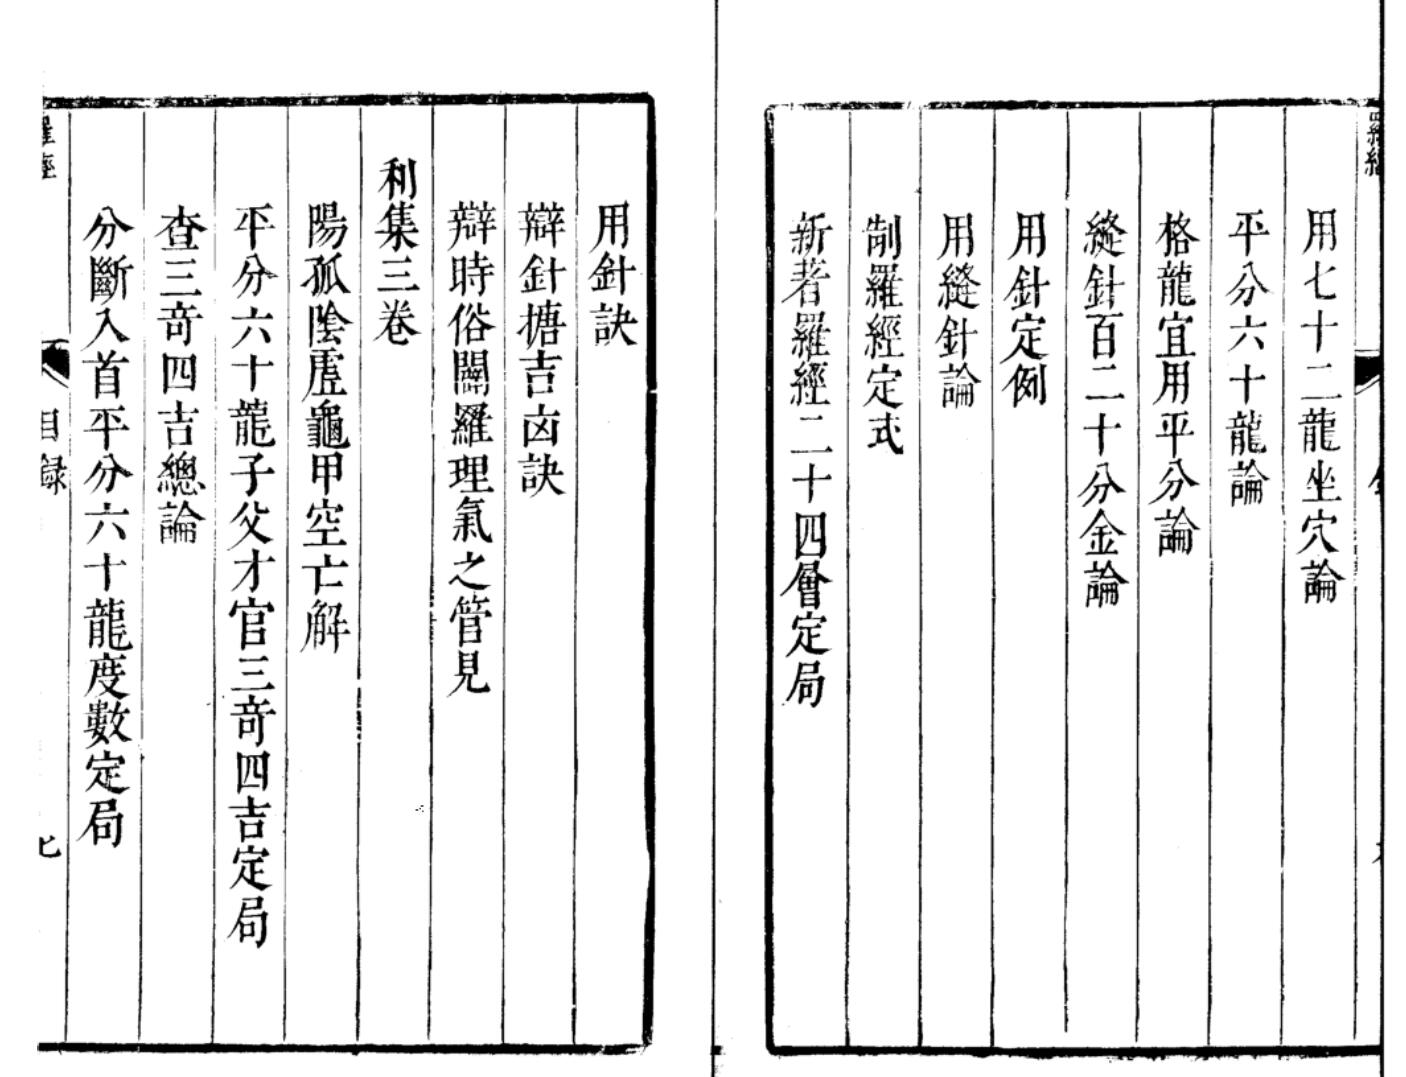 羅經
用七十二龍坐穴論
平分六十龍論
格龍宜用平分論
縫針百二十分金論
用針定例
用縫針論
制羅經定式
新著羅經二十四層定局
用針訣
辯針搪吉凶訣
辯時俗闢羅理氣之管見
利集三卷
陽孤陰虛龜甲空亡解
平分六十龍子父才官三奇四吉定局
查三奇四吉總論
分斷入首平分六十龍度數定局
羅經
目録
七